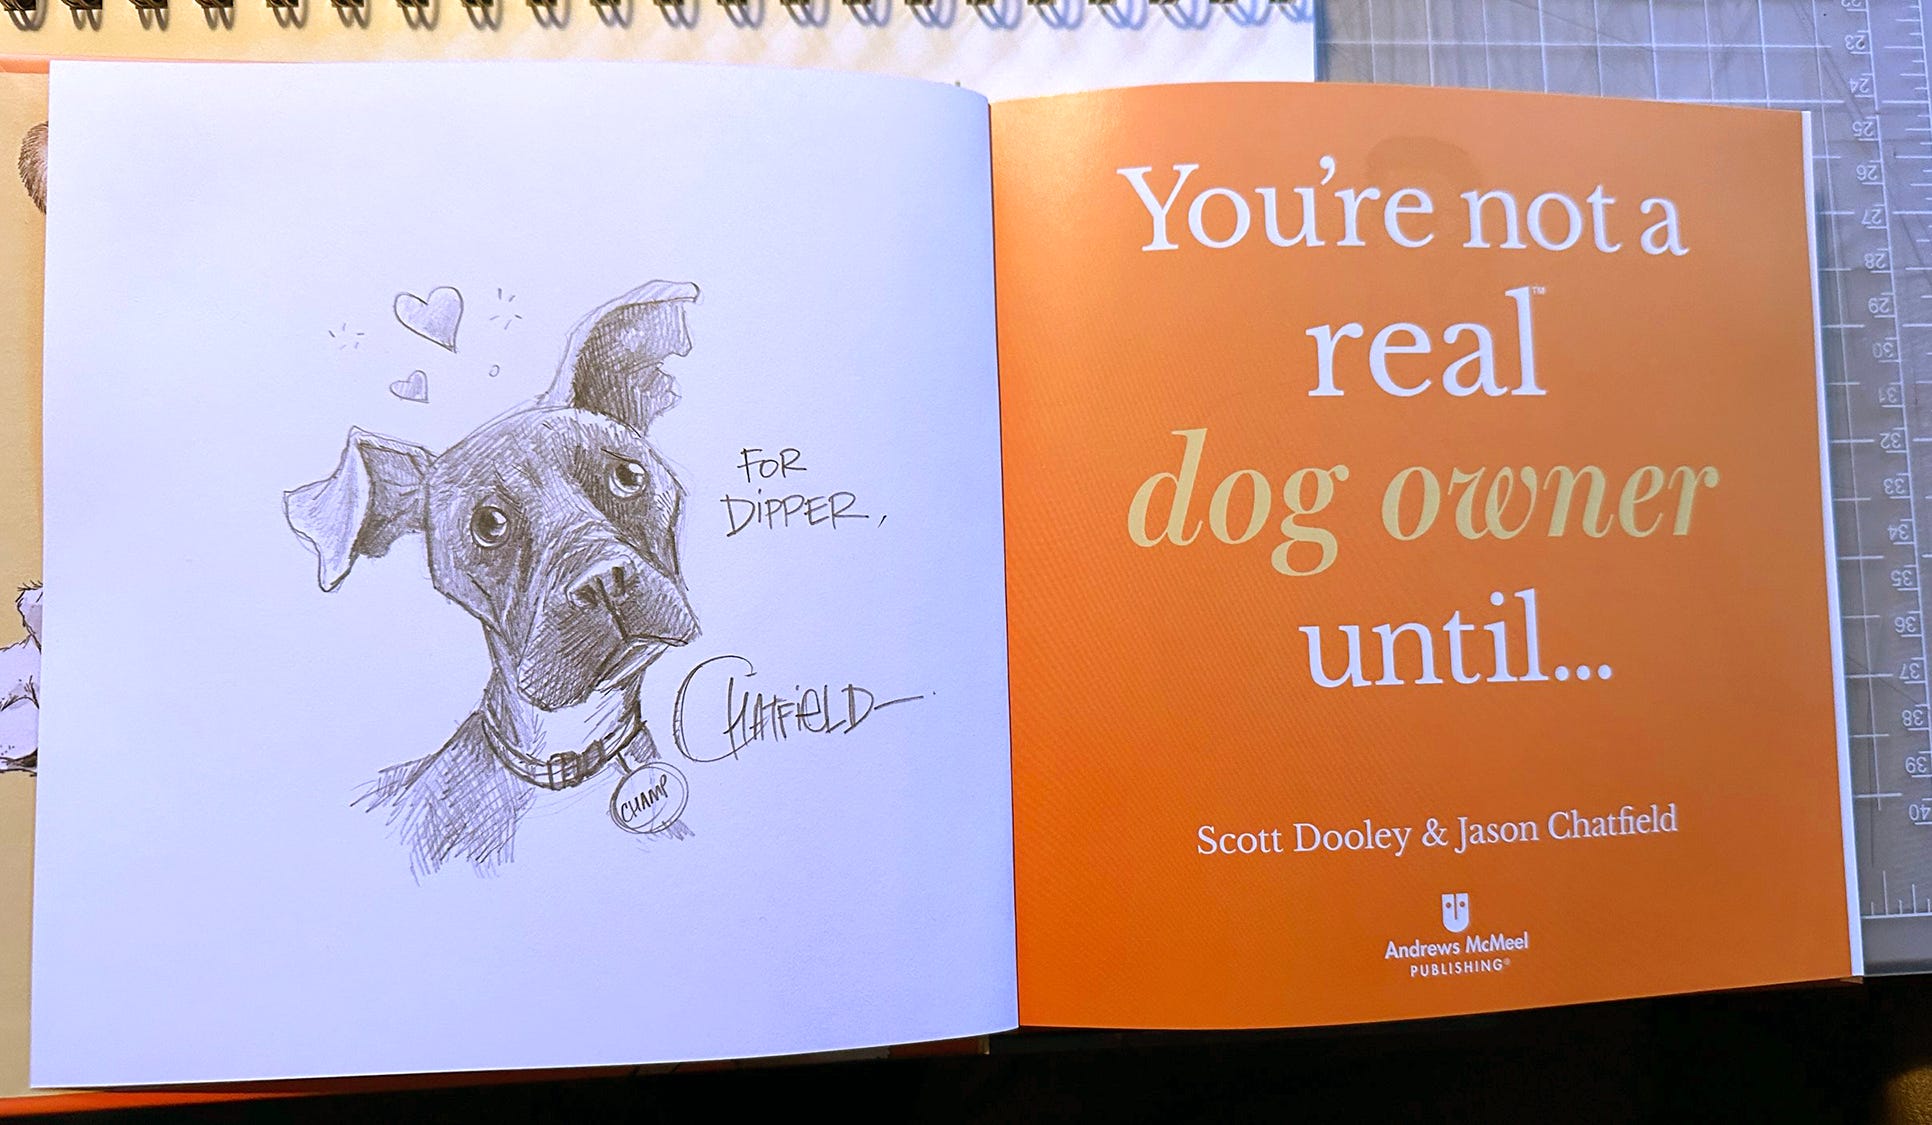 FOR
DiPPER,
CHATFiELD
CHAMP
You're not a
real™
dog owner
until...
Scott Dooley & Jason Chatfield
Andrews McMeel
PUBLISHING®
23
24
25
26
27
28
29
30
31
32
33
34
35
36
37
38
39
40